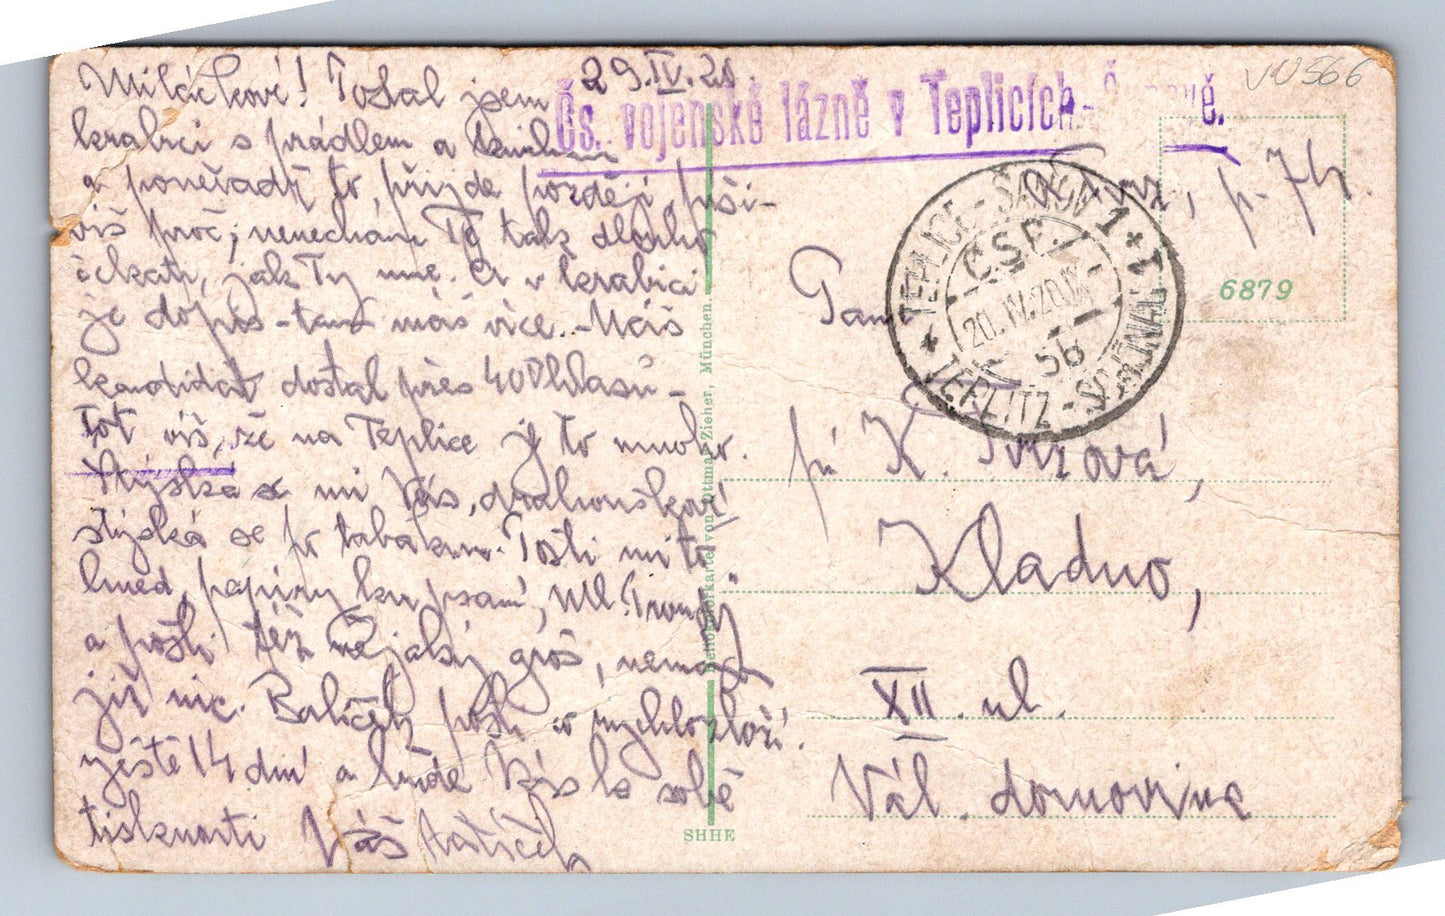 29.IV.20.
Miláčkové! Dostal jsem
krabici s prádlem a
a poněvadž to přijde později, píši-
víš proč; nenechám Ty tak dlouho
čekati, jak Ty mne. A v krabici
je dopis - tam máš více. - Náš
kandidát dostal přes 400 hlasů -
tot víš, že na Teplice je to mnoho.
Stýská se mi Vás,
stýská se po tabákem. Pošli mi to
hned, papíry ku psaní, Ml.
a pošli též nějaký groš, nemám
již nic. Balíček pošli co
ještě 14 dní a bude Vás k sobě
tisknouti Váš tatíček
Čs. vojenské lázně v Teplicích-Šanově.
VU 566
p. 74.
TEPLICE-ŠANOV 1
Č.S.P.
20.IV.20.IX-
5b
TEPLITZ-SCHÖNAU 1
6879
Paní
pí K. Tvrzová,
Kladno,
XII. ul.
Vál. domovina
Heliokolorkarte von Ottmar Zieher, München.
SHHE